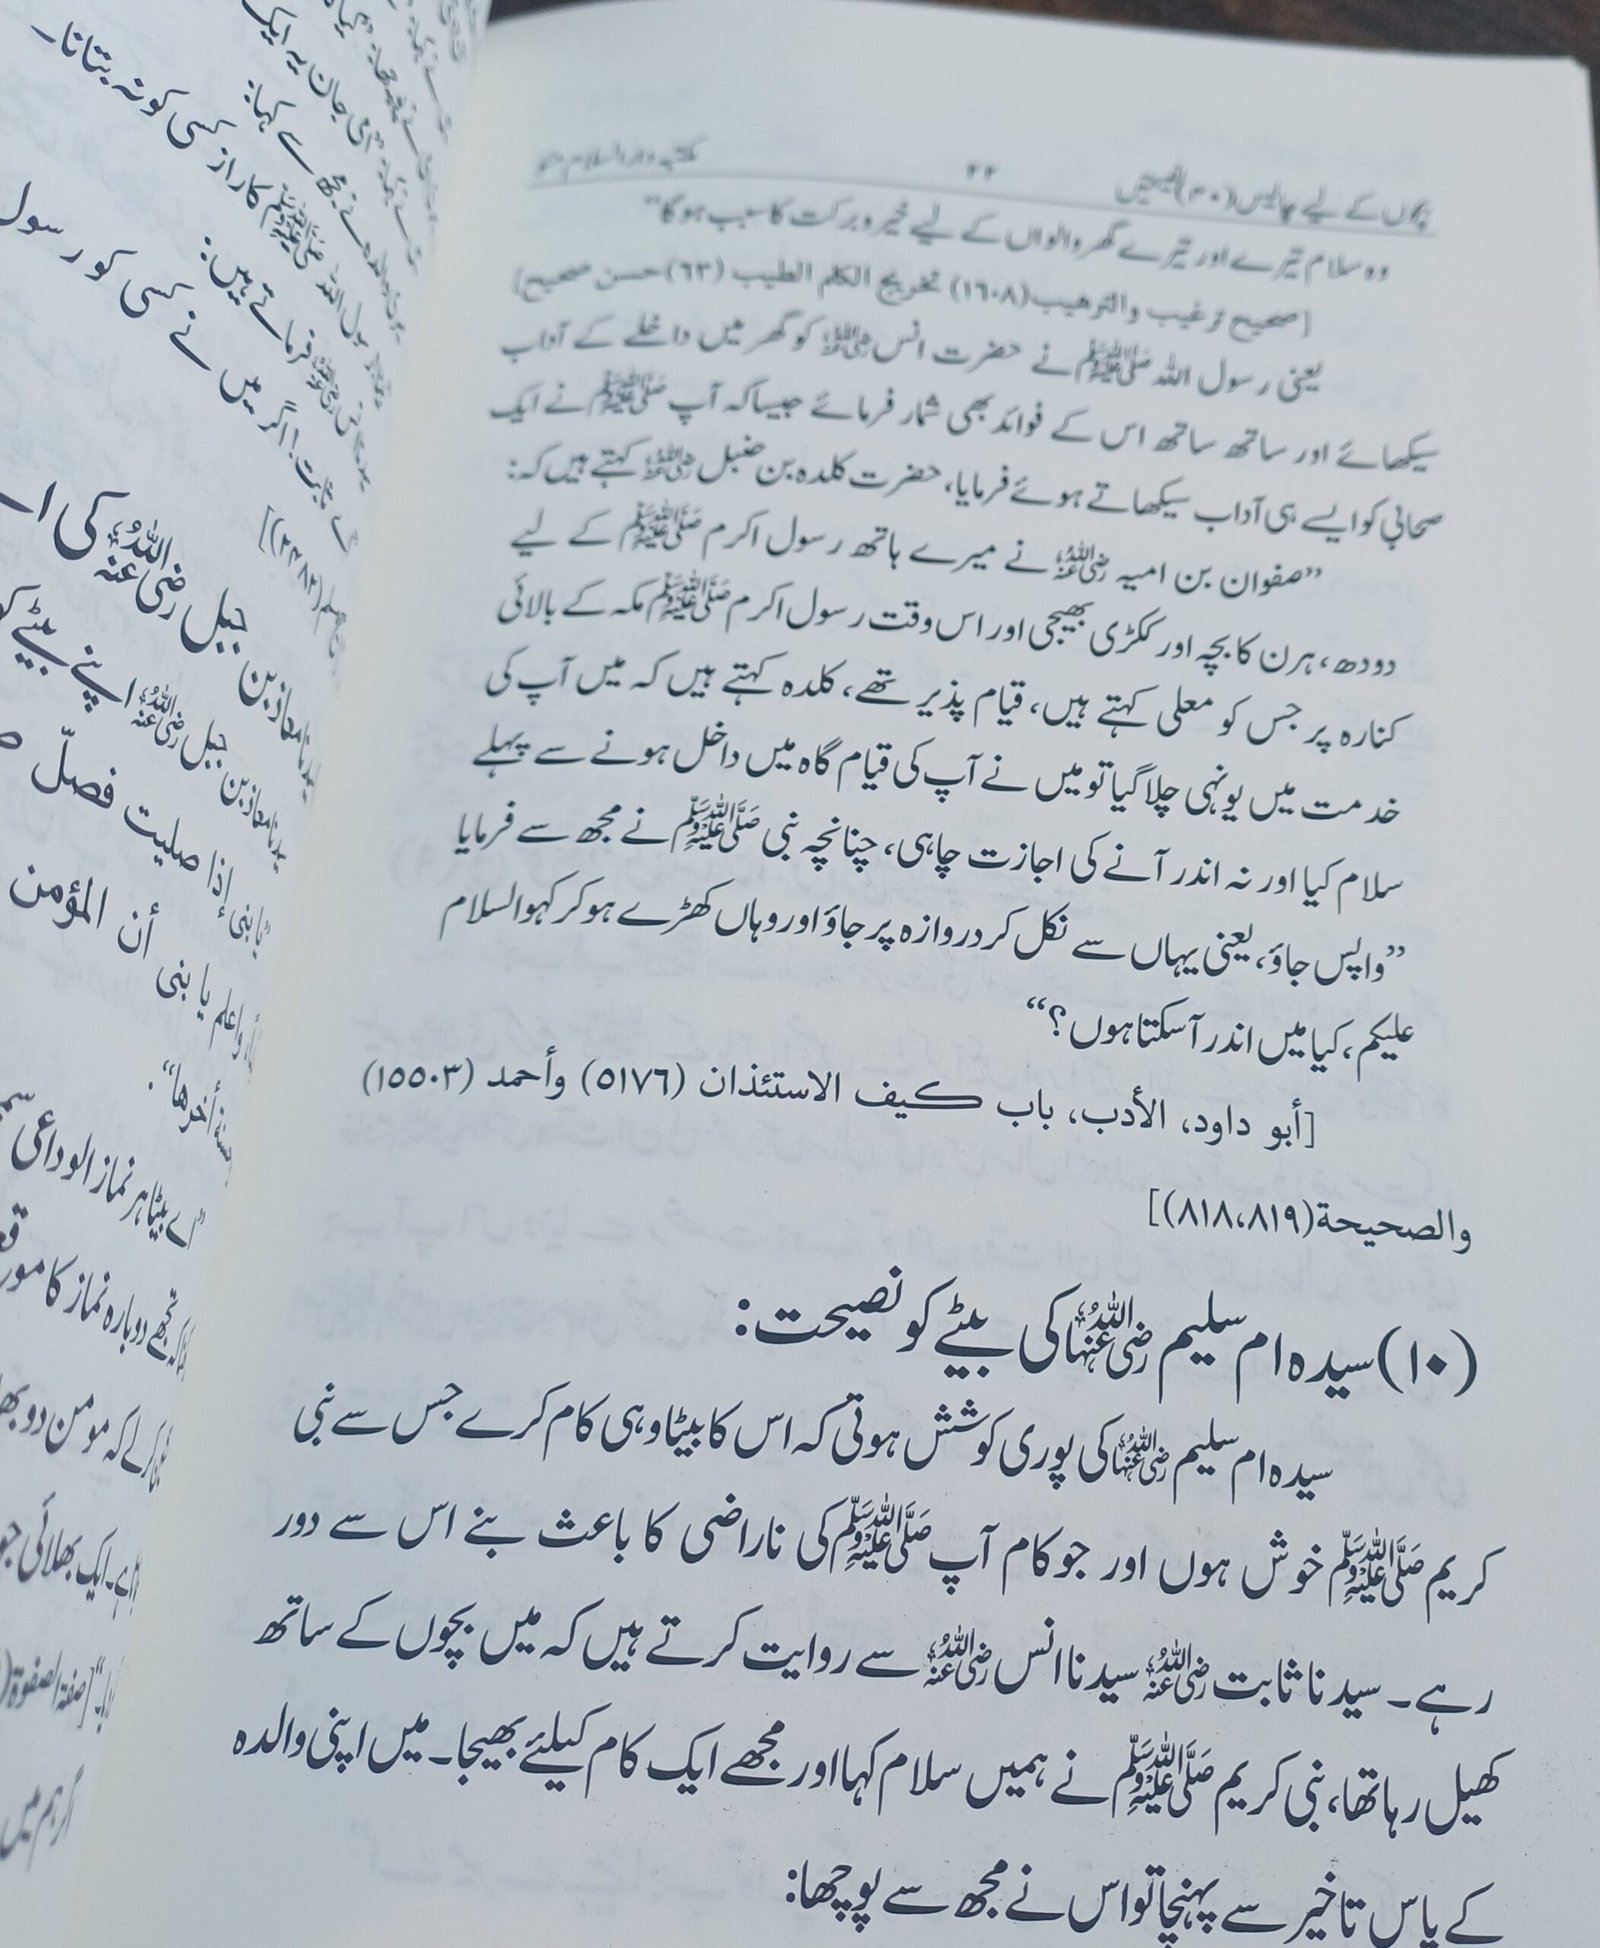 بچوں کے لیے چالیس (۴۰) نصیحتیں ۴۴ مکتبہ دارالسلام
وہ سلام تیرے اور تیرے گھر والوں کے لیے خیر و برکت کا سبب ہوگا“
[صحیح ترغیب والترهیب (١٦٠٨) تخریج الکلم الطیب (٦٣) حسن صحیح]
یعنی رسول اللہ ﷺ نے حضرت انس رضی اللہ عنہ کو گھر میں داخلے کے آداب
سیکھائے اور ساتھ ساتھ اس کے فوائد بھی شمار فرمائے جیسا کہ آپ ﷺ نے ایک
صحابی کو ایسے ہی آداب سیکھاتے ہوئے فرمایا، حضرت کلدہ بن حنبل رضی اللہ عنہ کہتے ہیں کہ:
”صفوان بن امیہ رضی اللہ عنہ نے میرے ہاتھ رسول اکرم ﷺ کے لیے
دودھ، ہرن کا بچہ اور ککڑی بھیجی اور اس وقت رسول اکرم ﷺ مکہ کے بالائی
کنارہ پر جس کو معلی کہتے ہیں، قیام پذیر تھے، کلدہ کہتے ہیں کہ میں آپ کی
خدمت میں یونہی چلا گیا تو میں نے آپ کی قیام گاہ میں داخل ہونے سے پہلے
سلام کیا اور نہ اندر آنے کی اجازت چاہی، چنانچہ نبی ﷺ نے مجھ سے فرمایا
”واپس جاؤ، یعنی یہاں سے نکل کر دروازہ پر جاؤ اور وہاں کھڑے ہو کر کہو السلام
علیکم، کیا میں اندر آسکتا ہوں؟“
[أبو داود، الأدب، باب كيف الاستئذان (٥١٧٦) وأحمد (١٥٥٠٣)
والصحيحة (٨١٨،٨١٩)]
(۱۰) سیدہ ام سلیم رضی اللہ عنہا کی بیٹے کو نصیحت:
سیدہ ام سلیم رضی اللہ عنہا کی پوری کوشش ہوتی کہ اس کا بیٹا وہی کام کرے جس سے نبی
کریم ﷺ خوش ہوں اور جو کام آپ ﷺ کی ناراضی کا باعث بنے اس سے دور
رہے۔ سیدنا ثابت رضی اللہ عنہ سیدنا انس رضی اللہ عنہ سے روایت کرتے ہیں کہ میں بچوں کے ساتھ
کھیل رہا تھا، نبی کریم ﷺ نے ہمیں سلام کہا اور مجھے ایک کام کیلئے بھیجا۔ میں اپنی والدہ
کے پاس تاخیر سے پہنچا تو اس نے مجھ سے پوچھا:
جان یہ ایک
مجھ سے کہا:
رسول اللہ ﷺ کا راز کسی کو نہ بتانا۔
فرماتے ہیں:
ثابت! اگر میں نے کسی کو رسول
معاذ بن جبل رضی اللہ عنہ کی ا
معاذ بن جبل رضی اللہ عنہ اپنے بیٹے کو
”يا بنى إذا صليت فصلّ
واعلم يا بنى أن المؤمن
أخرها“.
”اے بیٹا ہر نماز الوداعی
تجھے دوبارہ نماز کا موقع
لے کہ مومن دو
ایک بھلائی جو
[صفة الصفوة